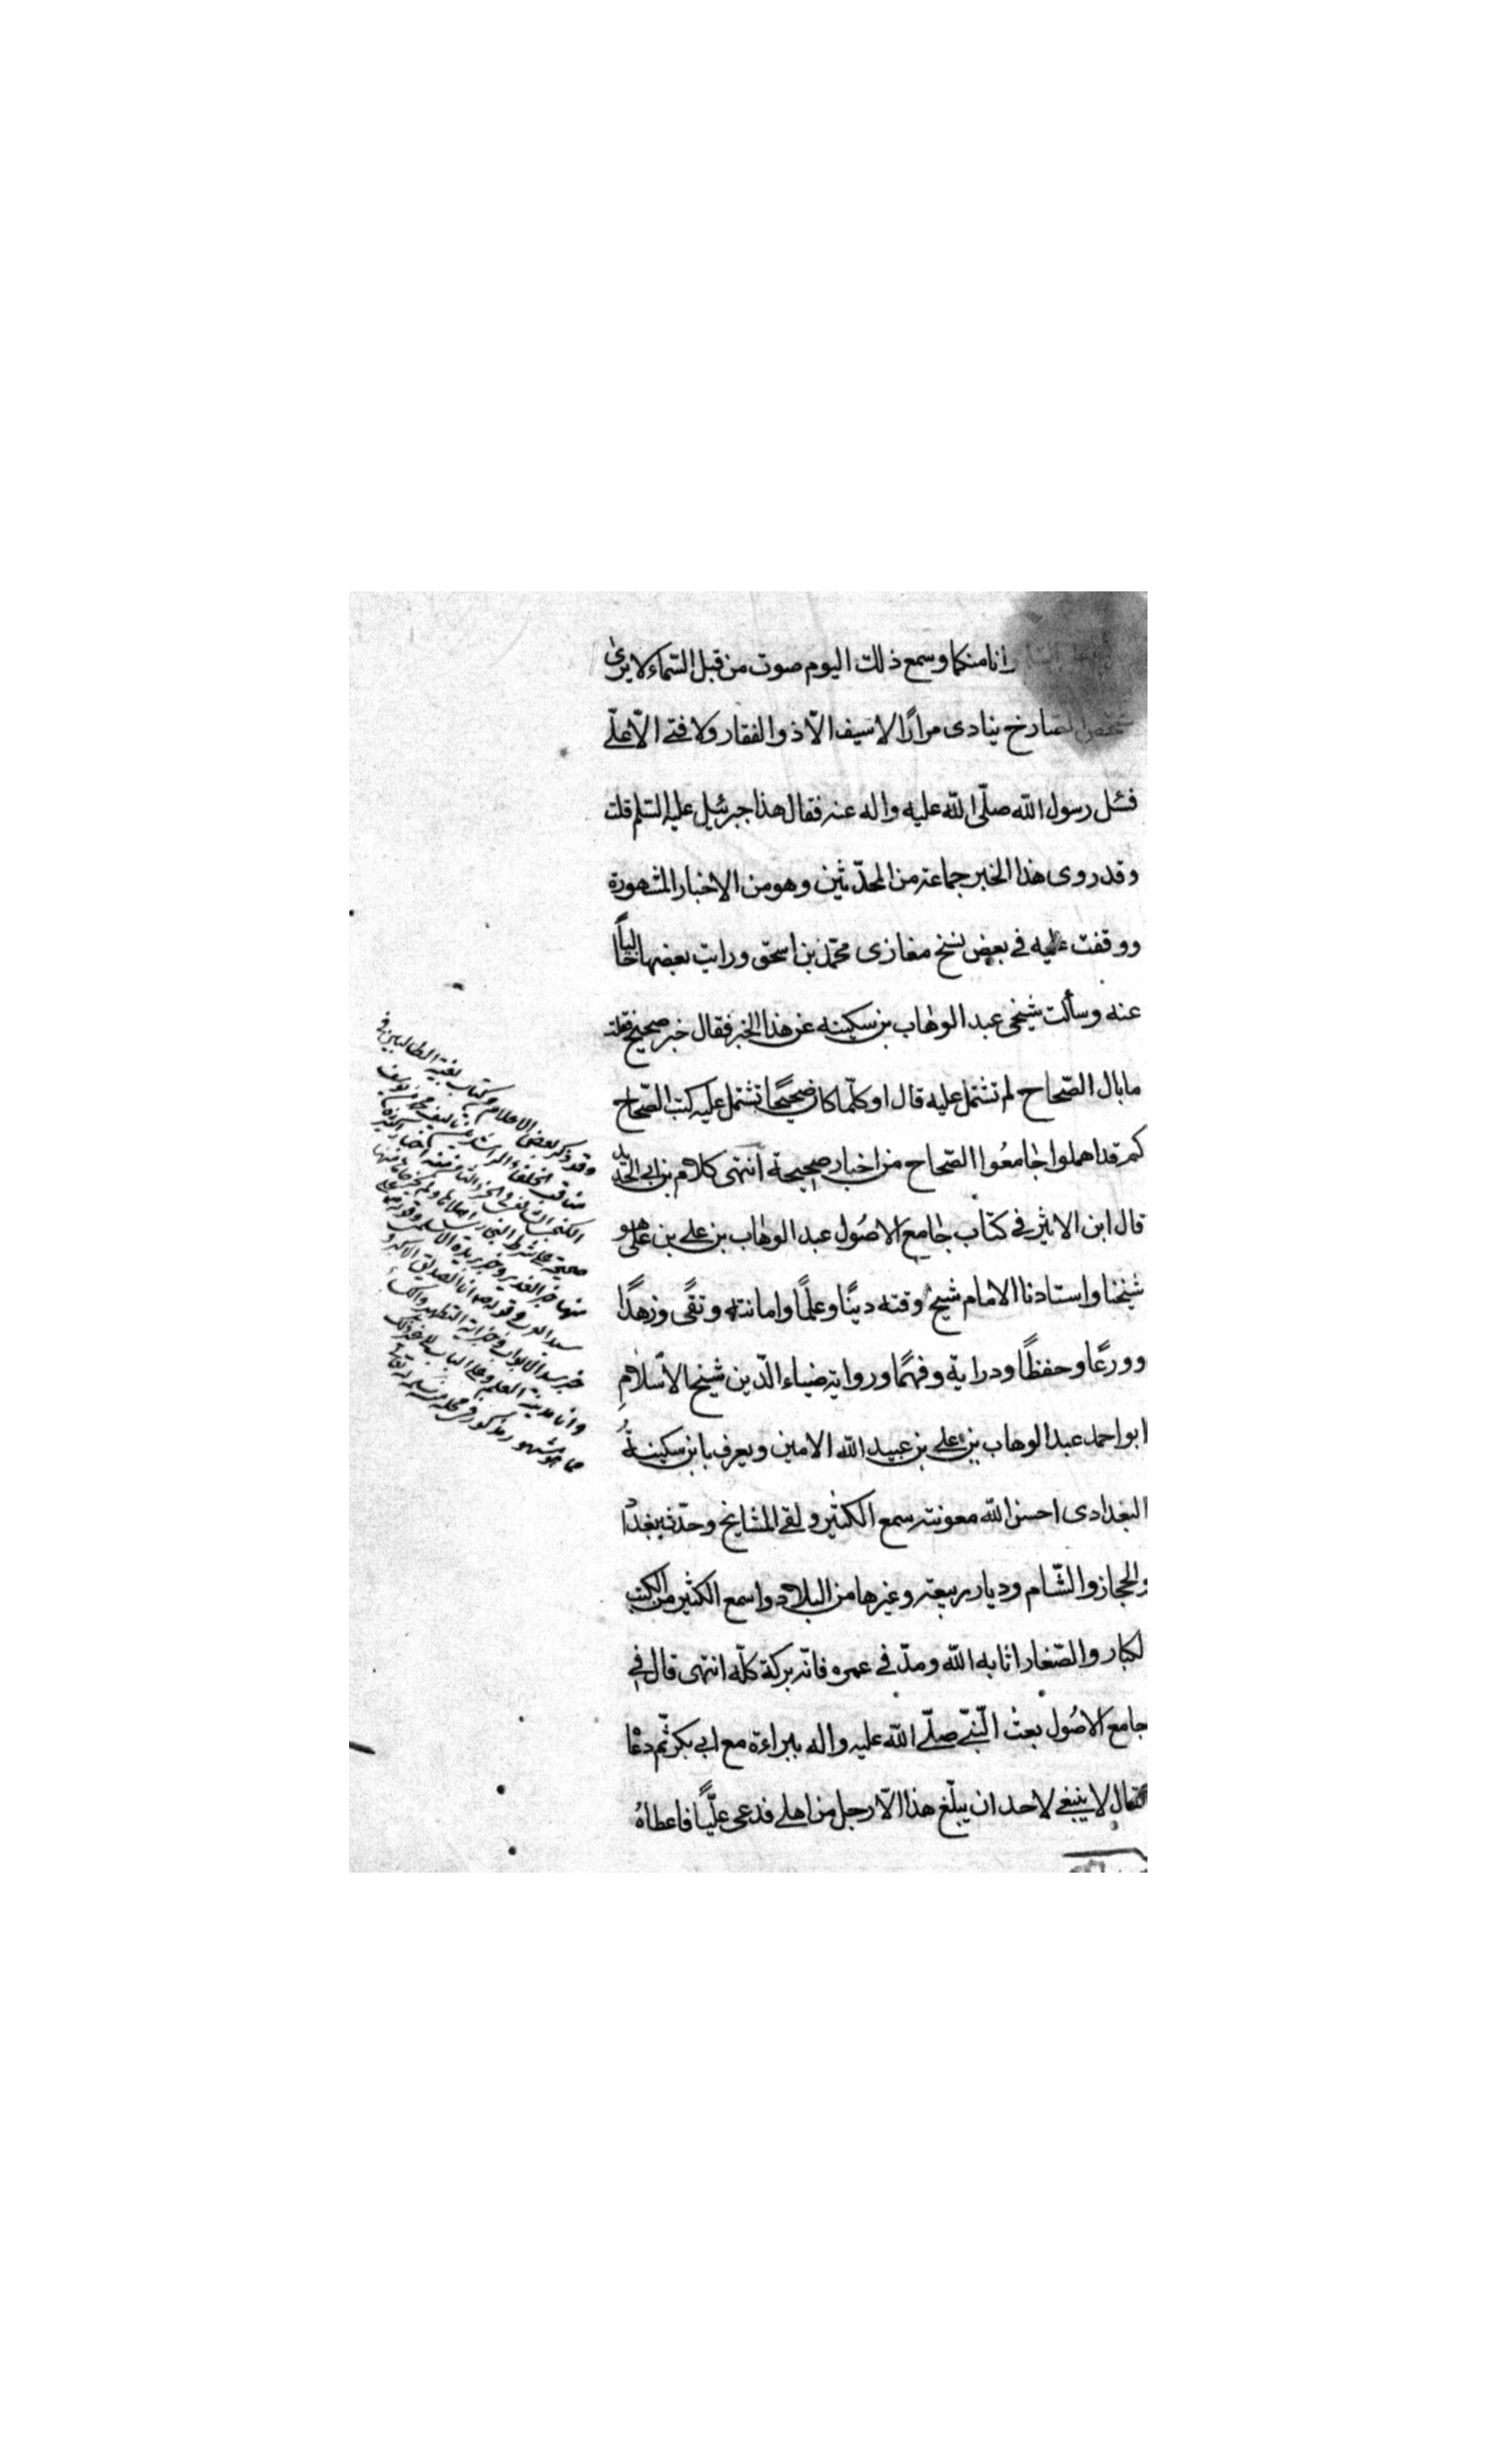 وانا منكما وسمع ذلك اليوم صوت من قبل السّماء لا يرىٰ
شخص الصارخ ينادى مرارًا لا سيف الّا ذو الفقار ولا فتى الّا علّى
فسُئل رسول اللّه صلّى اللّه عليه واله عنه فقال هذا جبرئيل عليه السّلم قلت
وقد روى هذا الخبر جماعة من المحدّثين وهو من الاخبار المشهورة
ووقفت عليه فى بعض نسخ مغازى محمّد بن اسحق ورايت بعضها خاليًا
عنه وسألت شيخى عبد الوهاب بن سكينه عن هذا الخبر فقال خبر صحيح فقلت
ما بال الصّحاح لم تشتمل عليه قال او كلّما كان صحيحًا تشتمل عليه كتب الصّحاح
كم قد اهملوا جامعُوا الصّحاح من اخبار صحيحة انتهى كلام بن ابى الحديد
قال ابن الاثير فى كتاب جامع الاصُول عبد الوهاب بن على بن على هو
شيخنا واستادنا الامام شيخ وقته دينًا وعلمًا وامانته وتقًى وزهدًا
وورعًا وحفظًا ودراية وفهمًا ورواية ضياء الدّين شيخ الاسْلامِ
ابو احمد عبد الوهاب بن على بن عبيد اللّه الامين ويعرف بابن سكينةُ
البغدادى احسن اللّه معونته سمع الكثير ولقى المشايخ وحدّث ببغداد
والحجاز والشّام وديار ربيعة وغيرها من البلاد واسمع الكثير من الكتب
لكبار والصّغار اثابه اللّه ومدّ فى عمره فانّه بركة كلّه انتهى قال فى
جامع الاصُول بعث النّبىّ صلّى اللّه عليه واله ببراءة مع ابى بكر ثمّ دعا
فقال لا ينبغى لاحد ان يبلّغ هذا الّا رجل من اهلى فدعى عليًّا فاعطاهُ
وقد ذكر بعض الاعلام وكتاب بغية الطالبين فى
مناقب الخلفاء الراشدين تاليف محمد بن يوسف
صحيحة على شرط البخارى
منها خبر الغدير وخبر بريدة الاسلمى
انا الصديق الاكبر و
خبر سد الابواب وخبر اية التطهير والكساء
وانا مدينة العلم وعلى الباب
مما هو مشهور مذكور فى محله